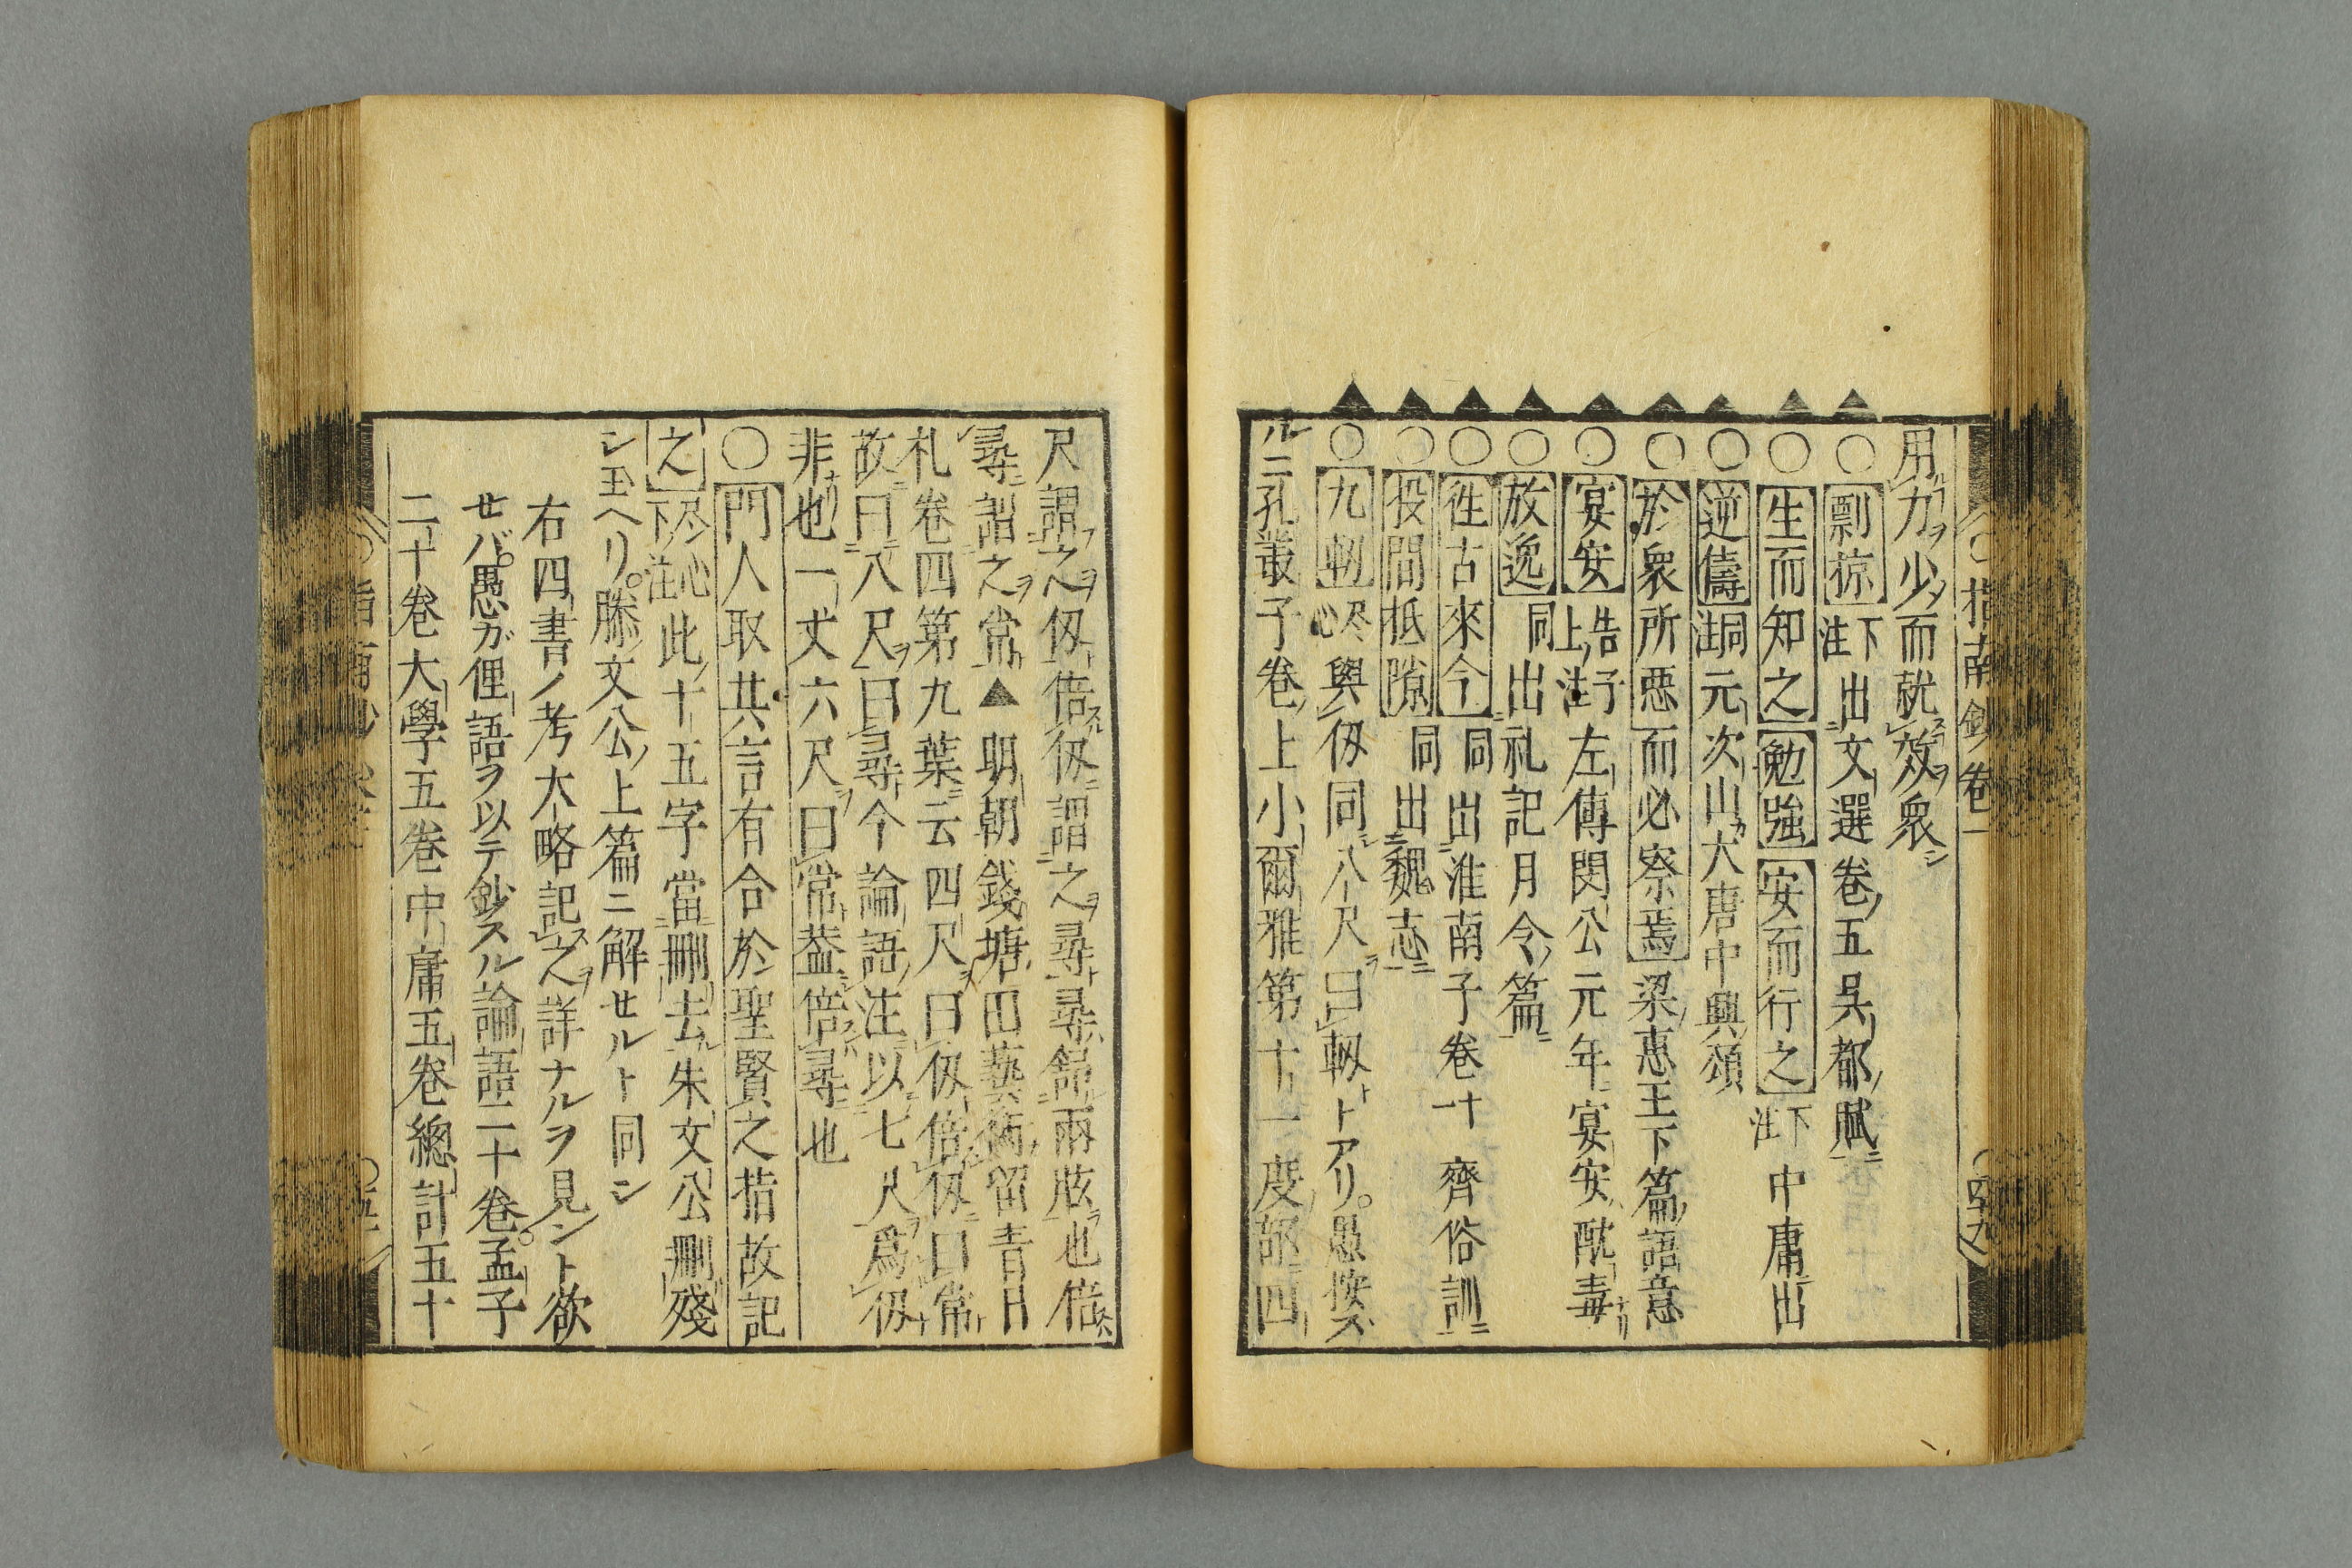 指南鈔卷一
用力少而就效衆
○剽掠下注出文選卷五呉都賦
○生而知之勉強安而行之下注中庸出
○逆儔同注元次山大唐中興頌
○於衆所惡而必察焉梁惠王下篇語意
○宴安告子上注左傳閔公元年宴安酖毒
○放逸同出礼記月令篇
○徃古來今同出淮南子卷十一齊俗訓
○投間抵隙同出魏志
○九軔尽心與仭同八尺曰軔トアリ。愚按ズ
ルニ孔叢子卷上小爾雅第十一度部四
尺謂之仭倍仭謂之尋尋舒兩肱也倍
尋謂之常▲明朝錢塘田藝衡留青日
札卷四第九葉云四尺曰仭倍仭曰常
故曰八尺曰尋今論語注以七尺爲仭
非也一丈六尺曰常葢倍尋也
○門人取其言有合於聖賢之指故記
之尽心下注此十五字當刪去朱文公刪殘
シ玉ヘリ。滕文公上篇ニ解セルト同シ
右四書ノ考大略記之詳ナルヲ見ント欲
セバ。愚ガ俚語ヲ以テ鈔スル論語二十卷。孟子
二十卷大學五卷中庸五卷總計五十